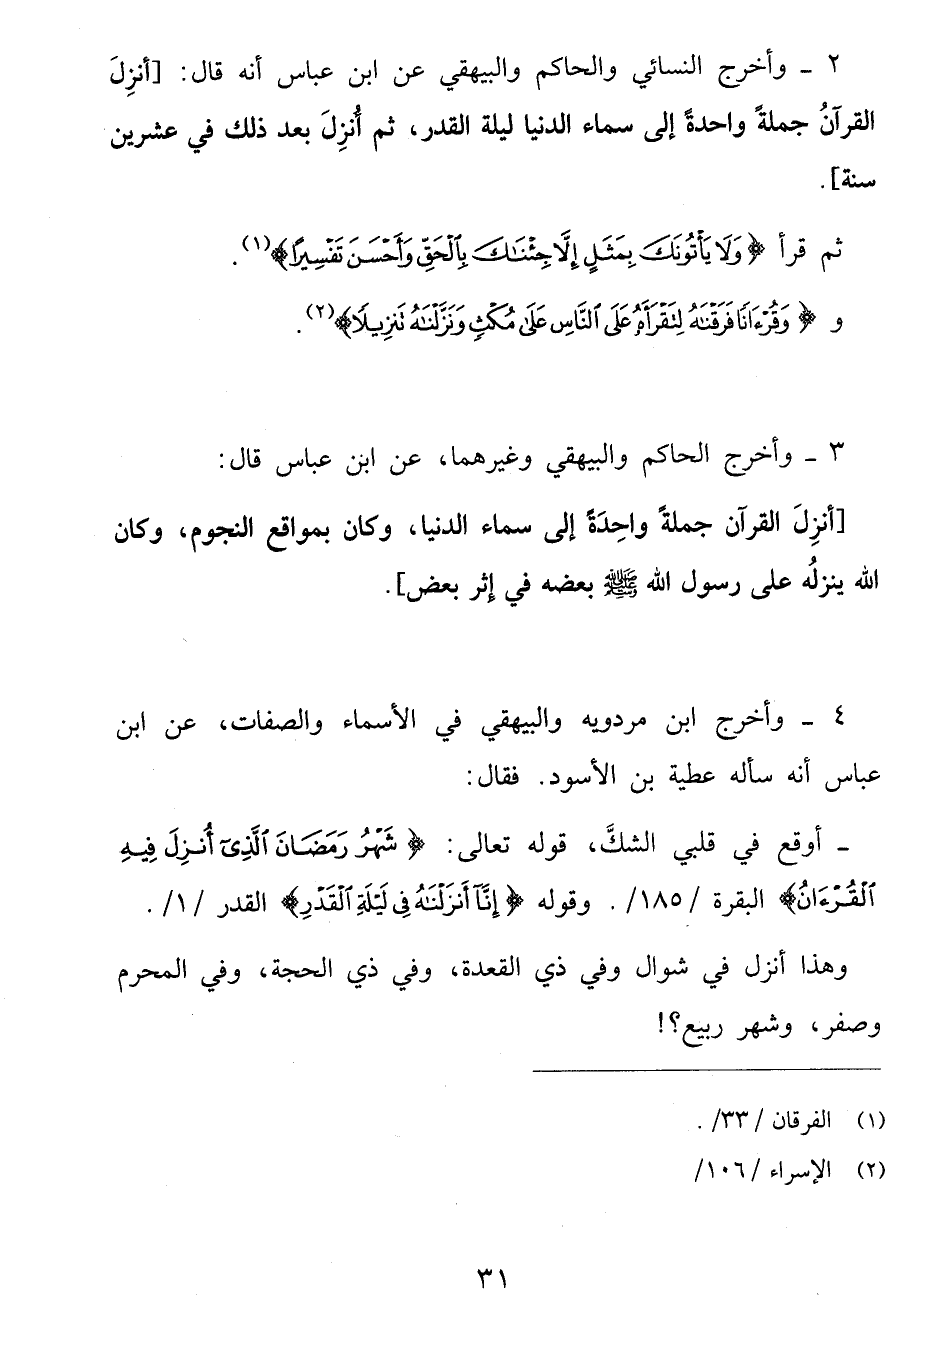 ٢ ـ وأخرج النسائي والحاكم والبيهقي عن ابن عباس أنه قال: [أنزِلَ
القرآنُ جملةً واحدةً إلى سماء الدنيا ليلة القدر، ثم أُنزِلَ بعد ذلك في عشرين
سنة].
ثم قرأ ﴿وَلَا يَأْتُونَكَ بِمَثَلٍ إِلَّا جِئْنَٰكَ بِٱلْحَقِّ وَأَحْسَنَ تَفْسِيرًا﴾(١).
و ﴿وَقُرْءَانًا فَرَقْنَٰهُ لِتَقْرَأَهُۥ عَلَى ٱلنَّاسِ عَلَىٰ مُكْثٍ وَنَزَّلْنَٰهُ تَنزِيلًا﴾(٢).
٣ ـ وأخرج الحاكم والبيهقي وغيرهما، عن ابن عباس قال:
[أنزِلَ القرآن جملةً واحِدَةً إلى سماء الدنيا، وكان بمواقع النجوم، وكان
الله ينزلُه على رسول الله ﷺ بعضه في إثر بعض].
٤ ـ وأخرج ابن مردويه والبيهقي في الأسماء والصفات، عن ابن
عباس أنه سأله عطية بن الأسود. فقال:
ـ أوقع في قلبي الشكَّ، قوله تعالى: ﴿شَهْرُ رَمَضَانَ ٱلَّذِىٓ أُنزِلَ فِيهِ
ٱلْقُرْءَانُ﴾ البقرة /١٨٥/. وقوله ﴿إِنَّآ أَنزَلْنَٰهُ فِى لَيْلَةِ ٱلْقَدْرِ﴾ القدر /١/.
وهذا أنزل في شوال وفي ذي القعدة، وفي ذي الحجة، وفي المحرم
وصفر، وشهر ربيع؟!
(١) الفرقان /٣٣/.
(٢) الإسراء /١٠٦/
٣١